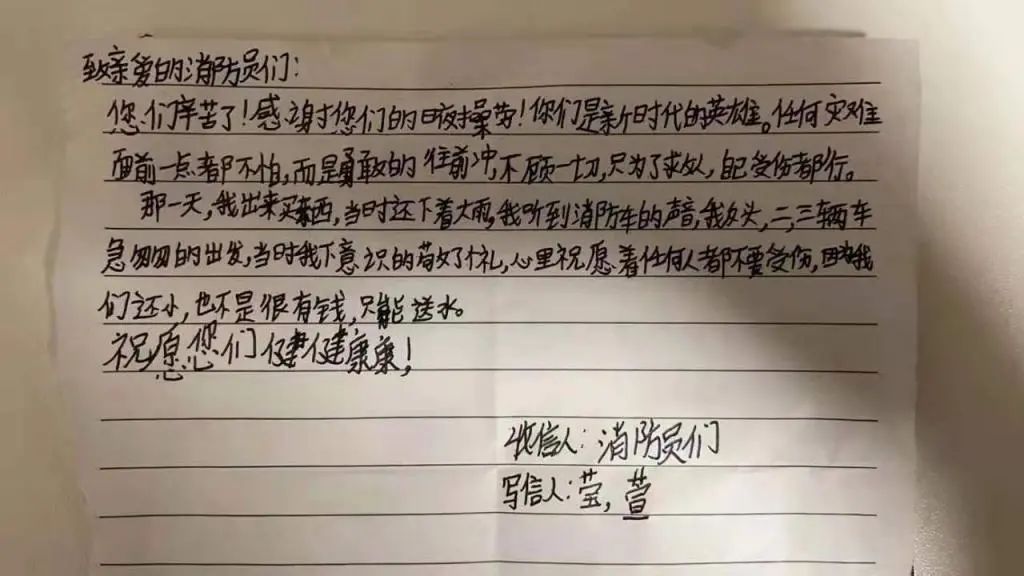 致亲爱的消防员们：
您们辛苦了！感谢您们的日夜操劳！你们是新时代的英雄。任何灾难
面前一点都不怕，而是勇敢的往前冲，不顾一切，只为了求人，自己受伤都行。
那一天，我出来买东西，当时还下着大雨，我听到消防车的声音，我回头，二，三辆车
急匆匆的出发，当时我下意识的敬了个礼，心里祝愿着任何人都不要受伤，因为我
们还小，也不是很有钱，只能送水。
祝愿您们健健康康！
收信人：消防员们
写信人：莹，萱